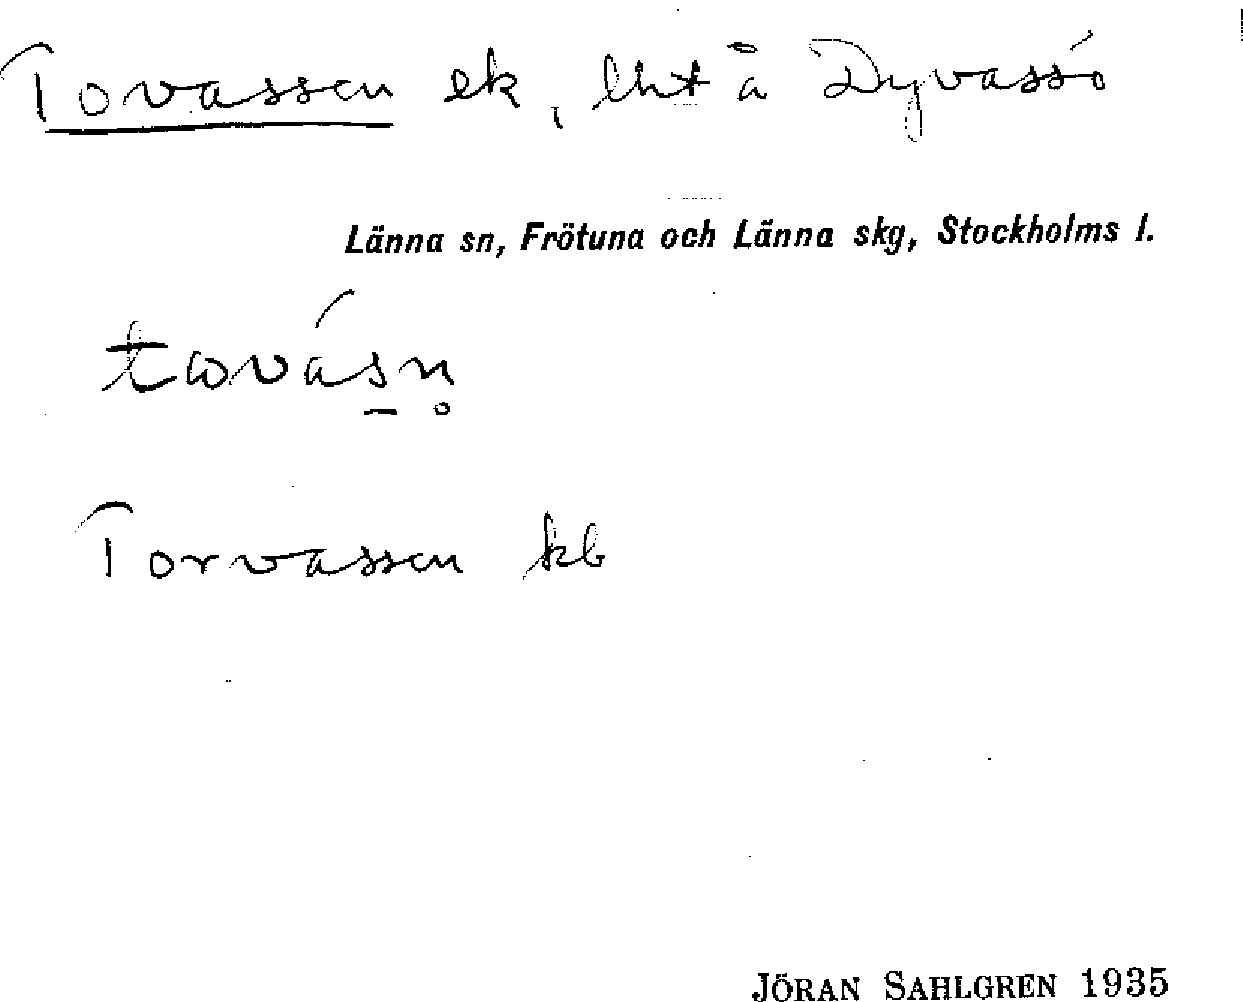 Tovassen ek, lht å Dyvassö
Länna sn, Frötuna och Länna skg, Stockholms l.
továsn̥
Torvassen kb
JÖRAN SAHLGREN 1935